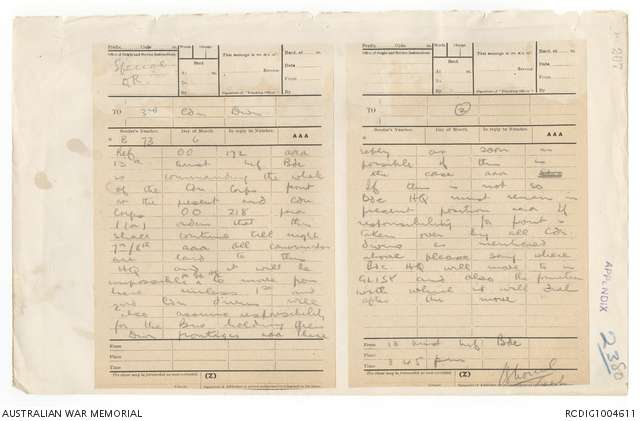 Prefix Code m.
Office of Origin and Service Instructions.
Special
D.R.
Words Charge
Sent
At m.
To
By
This message is on a/c of:
Service
(Signature of "Franking Officer.")
Recd. at m.
Date
From
By
TO 3rd Cdn Divn
Sender's Number. Day of Month In reply to Number. AAA
E 73 6
Ref OO 192 aaa
13th Aust Inf Bde
is commanding the whole
of the Cdn Corps front
at the present and Cdn
Corps OO 218 para
1 (a) orders that this
shall continue till night
7th/8th aaa All
are laid to this
HQ and it will be
impossible to move from
here unless 1st and
2nd Cdn divns will
also assume responsibility
for the Bns holding their
Divn frontages aaa Please
From
Place
Time
The above may be forwarded as now corrected. (Z)
Prefix Code m.
Office of Origin and Service Instructions.
Words Charge
Sent
At m.
To
By
This message is on a/c of:
Service
(Signature of "Franking Officer.")
Recd. at m.
Date
From
By
TO 2
Sender's Number. Day of Month In reply to Number. AAA
reply as soon as
possible if this is
the case aaa
If this is not so
Bde HQ must remain in
present position aaa If
responsibility for front is
taken over by all Cdn
divns as mentioned
above please say where
Bde HQ will move to in
and also the
with whom it will deal
after the move
From 13 Aust Inf Bde
Place
Time 3 45 pm
The above may be forwarded as now corrected. (Z)
APPENDIX
AUSTRALIAN WAR MEMORIAL
RCDIG1004611